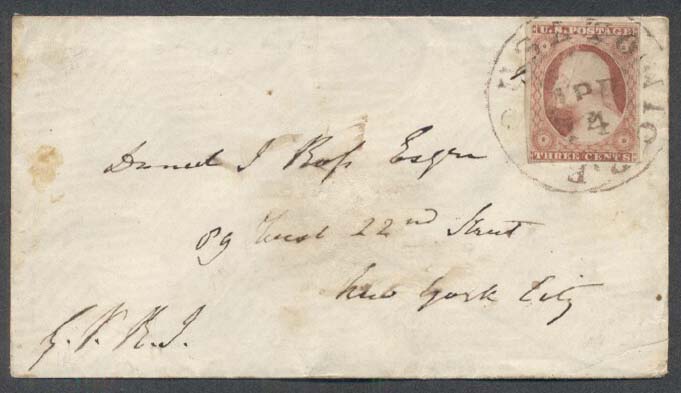 U.S. POSTAGE
THREE CENTS
APR
4
Daniel J Ross Esqre
89 West 22nd Street
New York City